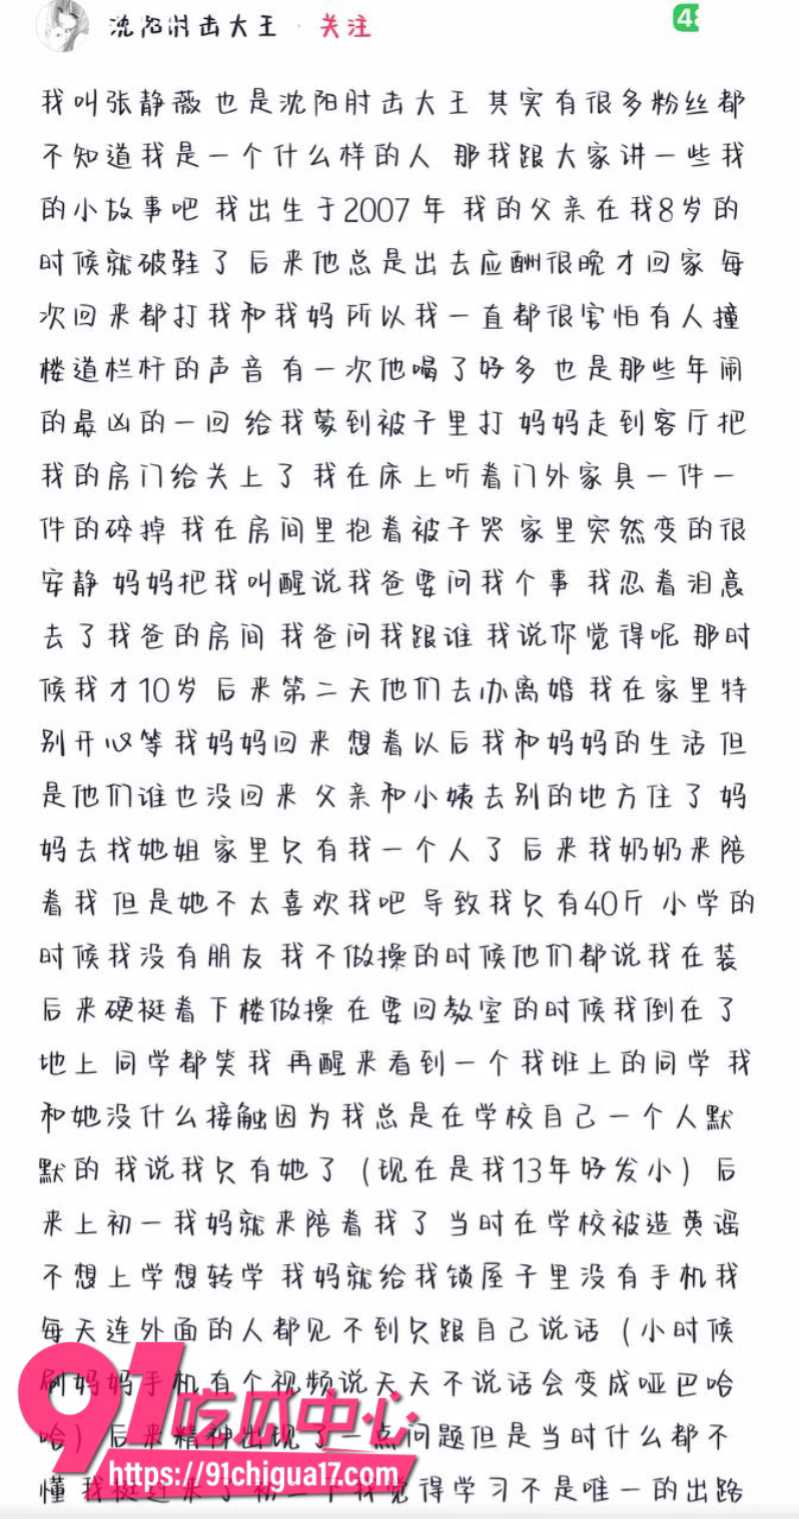 沈阳肘击大王 · 关注
我叫张静薇 也是沈阳肘击大王 其实有很多粉丝都
不知道我是一个什么样的人 那我跟大家讲一些我
的小故事吧 我出生于2007 年 我的父亲在我8岁的
时候就破鞋了 后来他总是出去应酬很晚才回家 每
次回来都打我和我妈 所以我一直都很害怕有人撞
楼道栏杆的声音 有一次他喝了好多 也是那些年闹
的最凶的一回 给我蒙到被子里打 妈妈走到客厅把
我的房门给关上了 我在床上听着门外家具一件一
件的碎掉 我在房间里抱着被子哭 家里突然变的很
安静 妈妈把我叫醒说我爸要问我个事 我忍着泪意
去了我爸的房间 我爸问我跟谁 我说你觉得呢 那时
候我才10岁 后来第二天他们去办离婚 我在家里特
别开心等我妈妈回来 想着以后我和妈妈的生活 但
是他们谁也没回来 父亲和小姨去别的地方住了 妈
妈去找她姐 家里只有我一个人了 后来我奶奶来陪
着我 但是她不太喜欢我吧 导致我只有40斤 小学的
时候我没有朋友 我不做操的时候他们都说我在装
后来硬挺着下楼做操 在要回教室的时候我倒在了
地上 同学都笑我 再醒来看到一个我班上的同学 我
和她没什么接触因为我总是在学校自己一个人默
默的 我说我只有她了（现在是我13年好发小）后
来上初一我妈就来陪着我了 当时在学校被造黄谣
不想上学想转学 我妈就给我锁屋子里没有手机我
每天连外面的人都见不到只跟自己说话（小时候
刷妈妈手机有个视频说天天不说话会变成哑巴哈
哈）后来精神出现了一点问题但是当时什么都不
懂 我挺过来了 初一下我觉得学习不是唯一的出路
91吃瓜中心
https://91chigua17.com